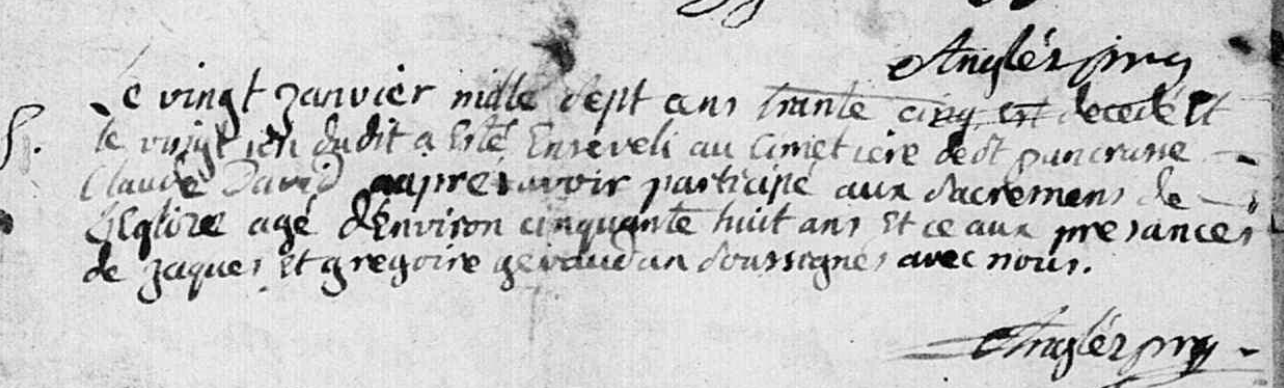 Anglés
Le vingt Janvier mille sept cens trante cinq est decedé Et
S.
le vingt un dudit a Esté Enseveli au Cimetiere de St pancrasse
Claude David aupres avoir participé aux sacremens de
L'Eglize agé d'Environ cinquante huit ans Et ce aux presances
de Jaques Et gregoire gevaudan soussignés avec nous.
Anglés